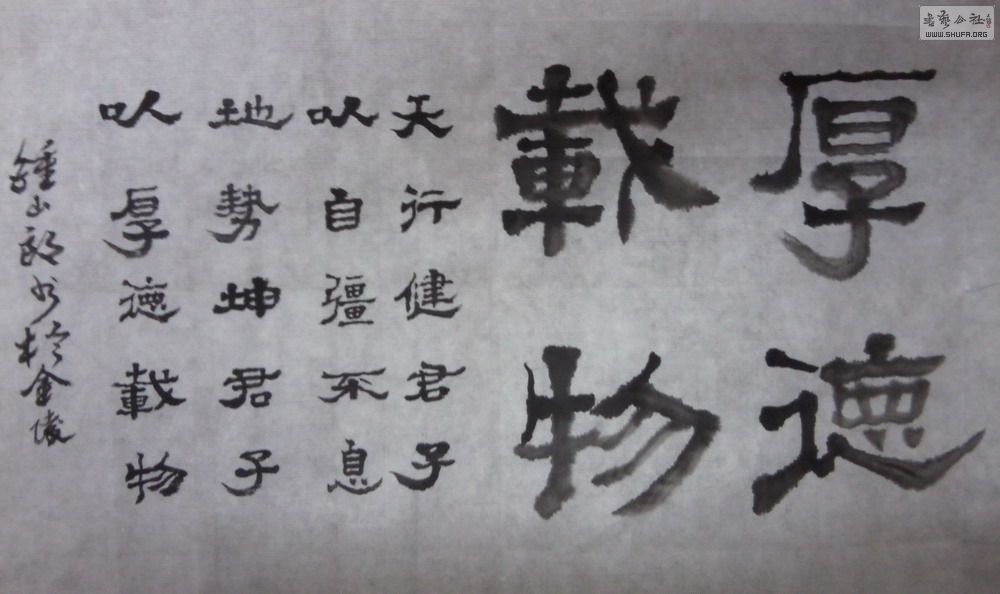 厚德
載物
天行健君子
以自彊不息
地勢坤君子
以厚德載物
鍾山郎书於金陵
书艺公社
WWW.SHUFA.ORG